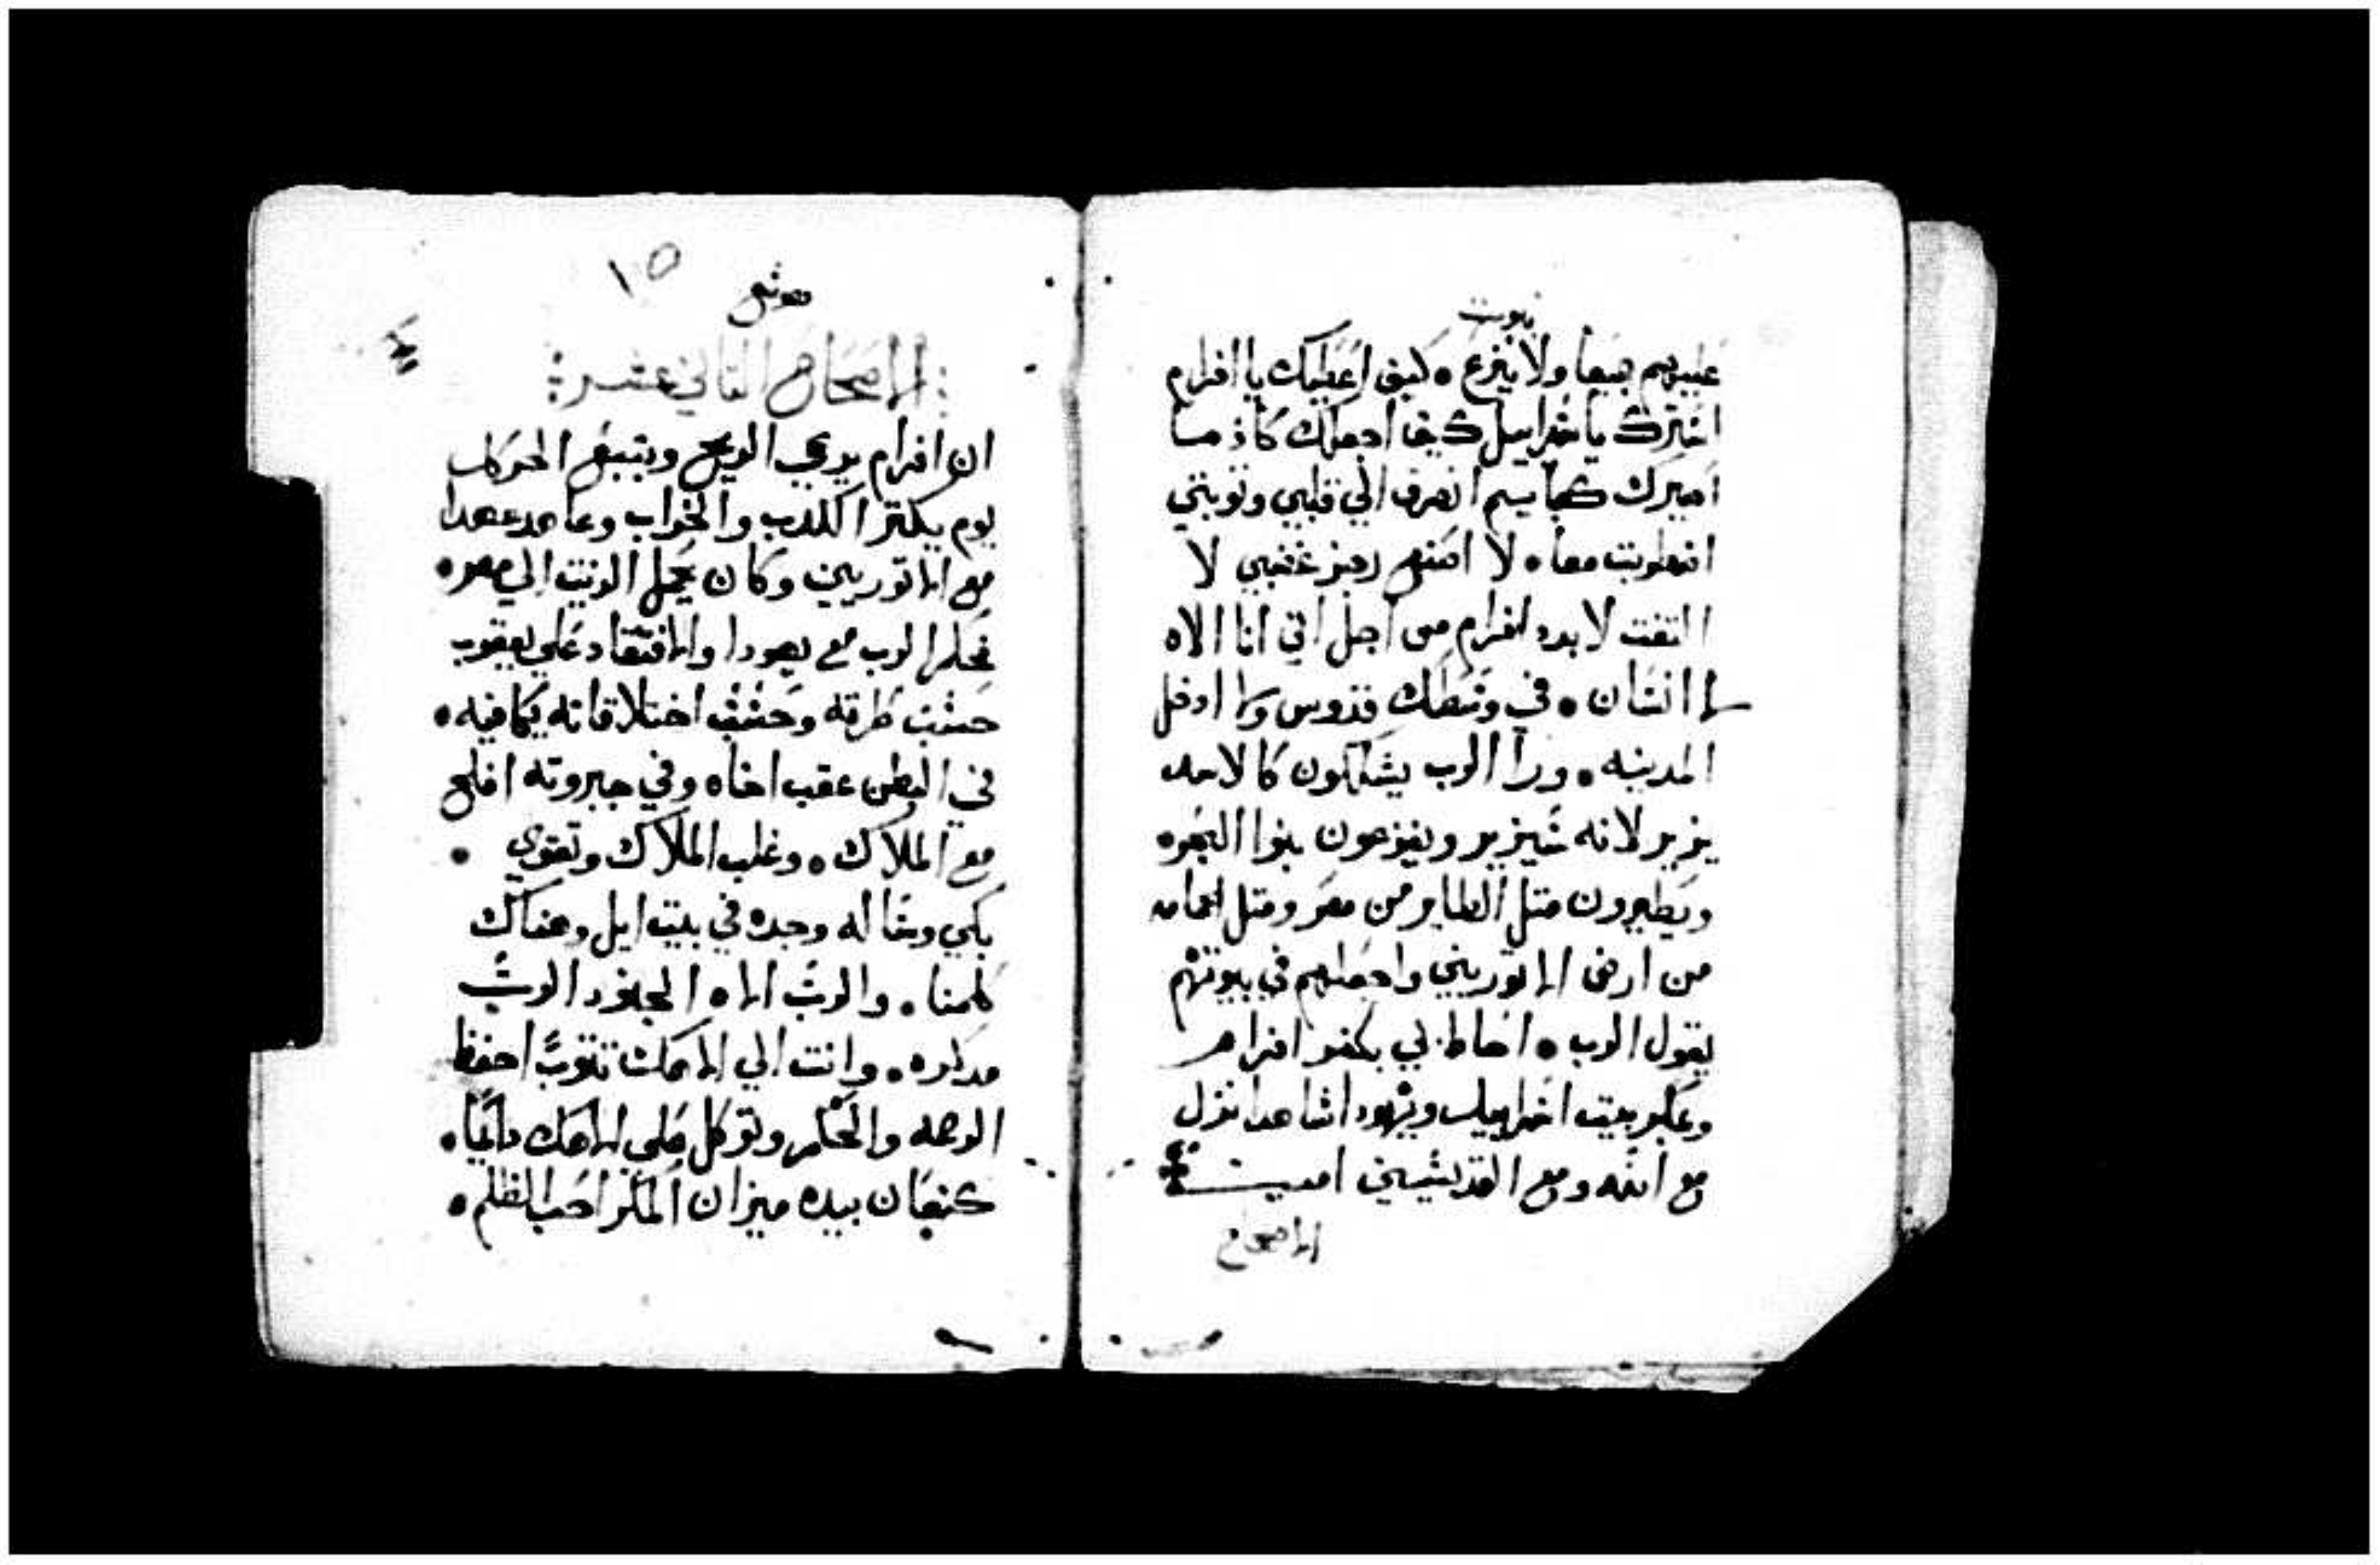 نبوت
عليهم جميعا ولا ينزع • كيف اعطيك يا افرام
استرك يا اسراييل كيف اجعلك كاذما
اصيرك كصابييم انصرف الي قلبي وتوبتي
اضطربت معا • لا اصنع رجز غضبي لا
التفت لابيد افرام من اجل اني انا الاه
لا انسان • في وسطك قدوس ولا ادخل
المدينه • ورا الرب يسلكون كالاسد
يزير لانه سيزير ويفزعون بنوا البحوه
ويطيرون متل الطاير من مصر ومتل الحمامه
من ارض الاتوريين واجعلهم في بيوتهم
يقول الرب • احاط بي بكفر افرام
وبمكر بيت اسراييل ويهودا شاهدا نزل
مع الله ومع القديسين امين
الاصحاح
١٥
هوشع
الاصحاح التاني عشر
ان افرام يرعي الريح ويتبع الحر كل
يوم يكتر الكدب والخراب وعاهد عهدا
مع الاتوريين وكان يحمل الزيت الي مصر •
فحكم الرب مع يهودا والافتقاد علي يعقوب
حسب طرقه وحسب اختلاقاته يكافيه •
في البطن عقب اخاه وفي جبروته افلح
مع الملاك • وغلب الملاك وتقوي •
بكي وساله وجده في بيت ايل وهناك
كلمنا • والرب الاه الجنود الرب
مدكره • وانت الي الاهك تتوب احفظ
الرحمه والحكم وتوكل علي الاهك دايما •
كنعان بيده ميزان المكر احب الظلم •